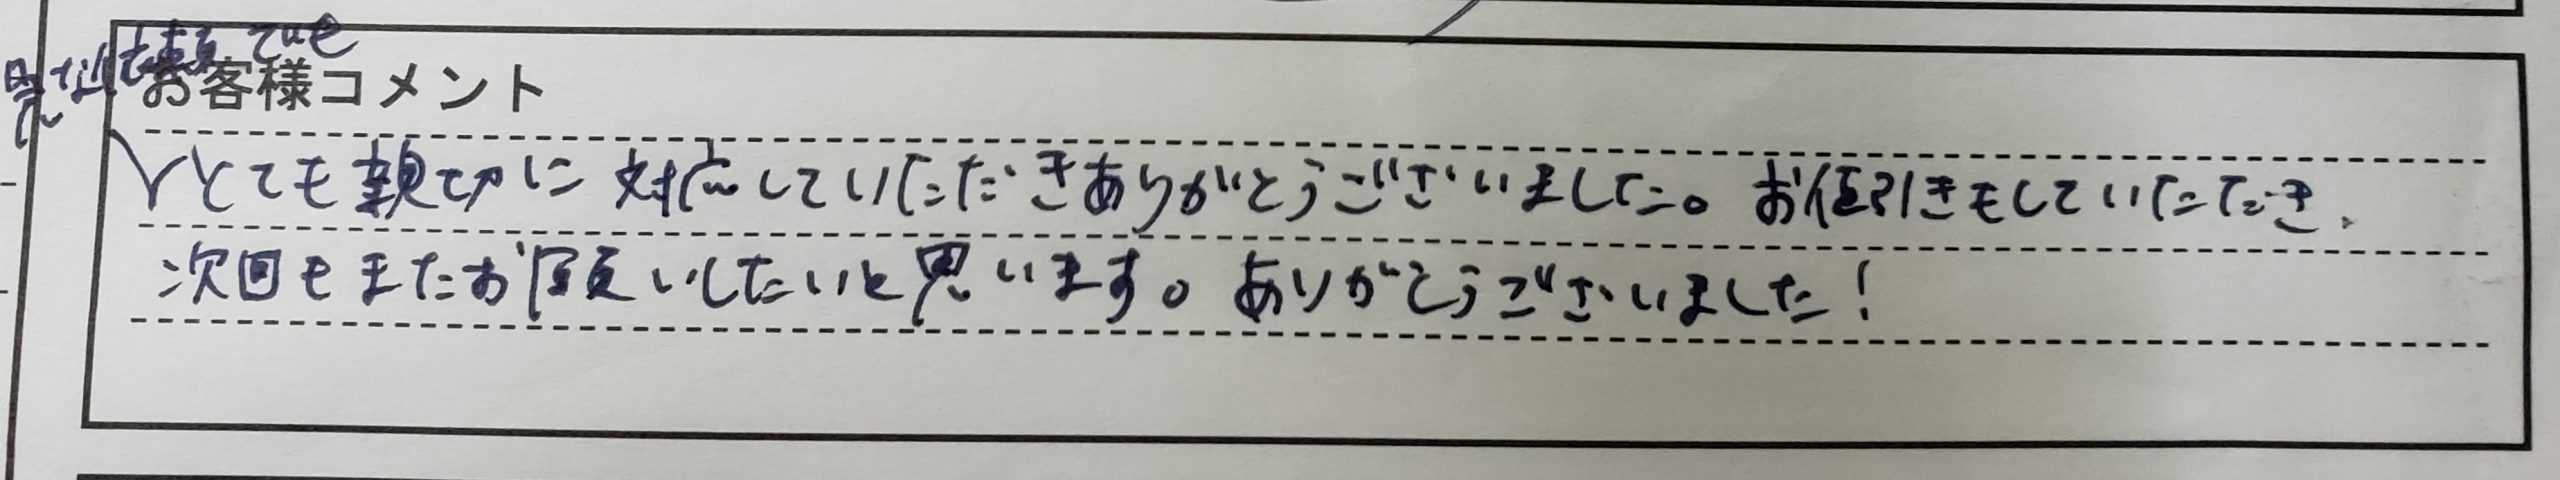 お客様コメント
とても親切に対応していただきありがとうございました。お値引きもしていただき、
次回もまたお願いしたいと思います。ありがとうございました!